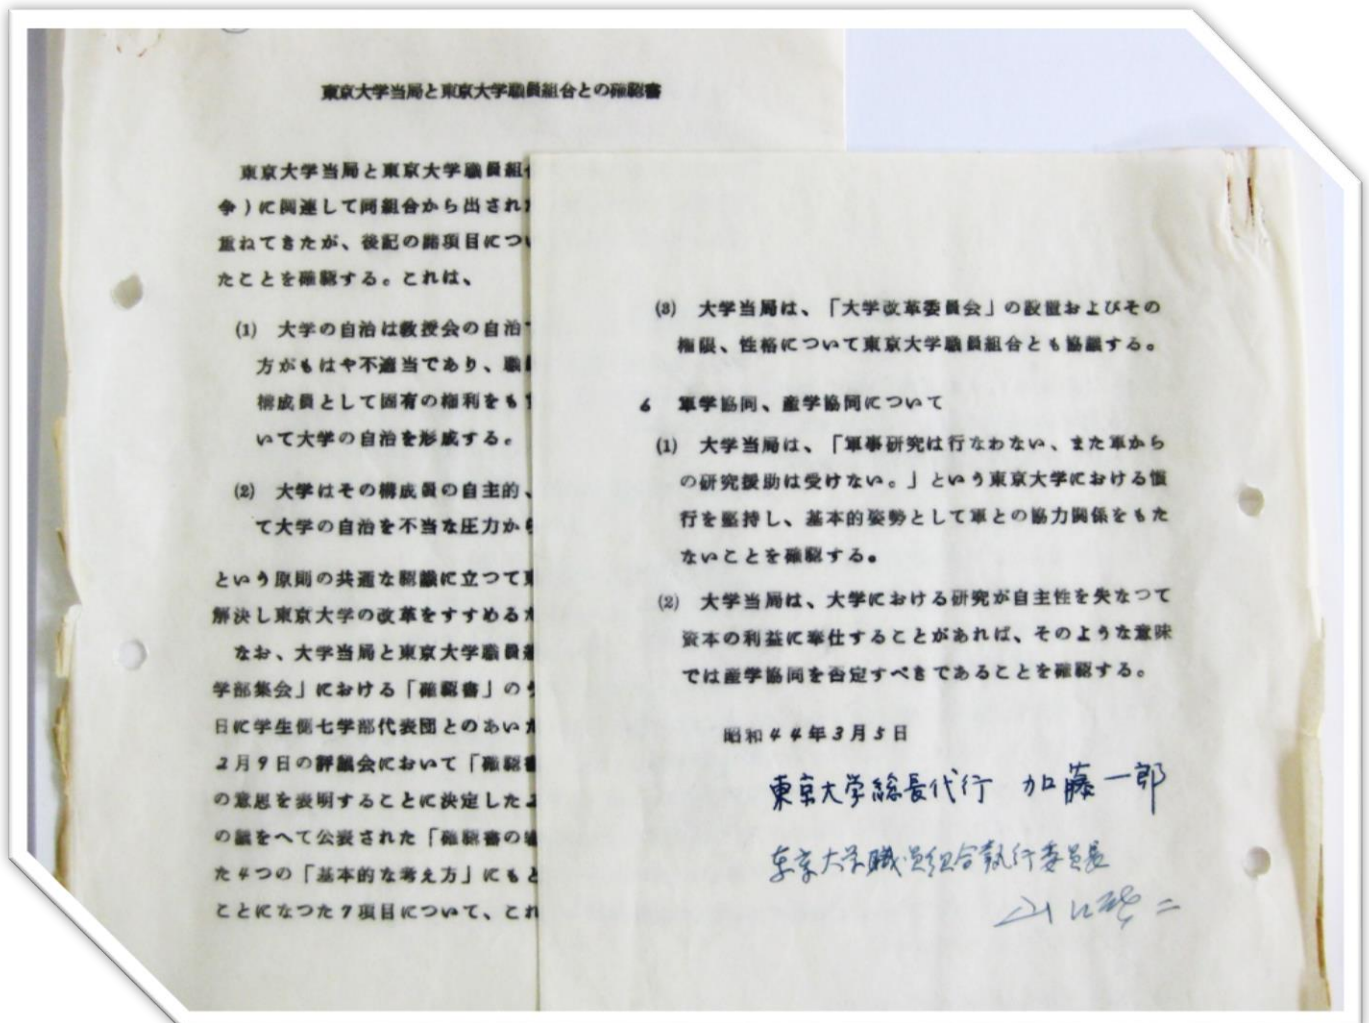 東京大学当局と東京大学職員組合との確認書
東京大学当局と東京大学職員組
争)に関連して同組合から出された
重ねてきたが、後記の諸項目につい
たことを確認する。これは、
(1) 大学の自治は教授会の自治
方がもはや不適当であり、職
構成員として固有の権利をも
いて大学の自治を形成する。
(2) 大学はその構成員の自主的、
て大学の自治を不当な圧力から
という原則の共通な認識に立つて
解決し東京大学の改革をすすめるた
なお、大学当局と東京大学職員
学部集会」における「確認書」のう
日に学生側七学部代表団とのあいだ
2月9日の評議会において「確認書
の意思を表明することに決定したよ
の議をへて公表された「確認書の
た4つの「基本的な考え方」にもと
ことになつた7項目について、これ
(3) 大学当局は、「大学改革委員会」の設置およびその
権限、性格について東京大学職員組合とも協議する。
6 軍学協同、産学協同について
(1) 大学当局は、「軍事研究は行なわない、また軍から
の研究援助は受けない。」という東京大学における慣
行を堅持し、基本的姿勢として軍との協力関係をもた
ないことを確認する。
(2) 大学当局は、大学における研究が自主性を失なつて
資本の利益に奉仕することがあれば、そのような意味
では産学協同を否定すべきであることを確認する。
昭和44年3月5日
東京大学総長代行 加藤一郎
東京大学職員組合執行委員長
山口啓二